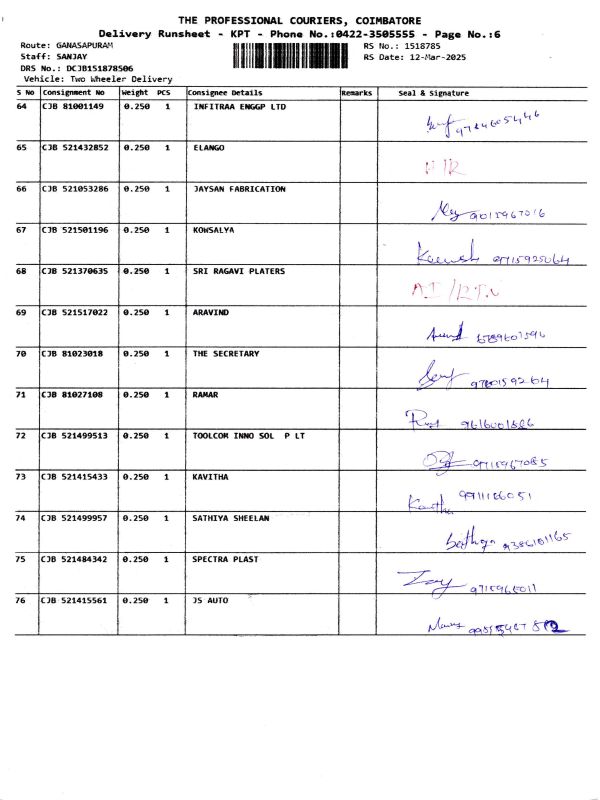 THE PROFESSIONAL COURIERS, COIMBATORE
Delivery Runsheet - KPT - Phone No.:0422-3505555 - Page No.:6
Route: GANASAPURAM RS No.: 1518785
Staff: SANJAY RS Date: 12-Mar-2025
DRS No.: DCJB151878506
Vehicle: Two Wheeler Delivery
S No Consignment No Weight PCS Consignee Details Remarks Seal & Signature
64 CJB 81001149 0.250 1 INFITRAA ENGGP LTD
65 CJB 521432852 0.250 1 ELANGO
66 CJB 521053286 0.250 1 JAYSAN FABRICATION 9015967016
67 CJB 521501196 0.250 1 KOWSALYA 9715925064
68 CJB 521370635 0.250 1 SRI RAGAVI PLATERS
69 CJB 521517022 0.250 1 ARAVIND
70 CJB 81023018 0.250 1 THE SECRETARY
71 CJB 81027108 0.250 1 RAMAR
72 CJB 521499513 0.250 1 TOOLCOM INNO SOL P LT 9715967085
73 CJB 521415433 0.250 1 KAVITHA Kavitha
74 CJB 521499957 0.250 1 SATHIYA SHEELAN
75 CJB 521484342 0.250 1 SPECTRA PLAST
76 CJB 521415561 0.250 1 JS AUTO